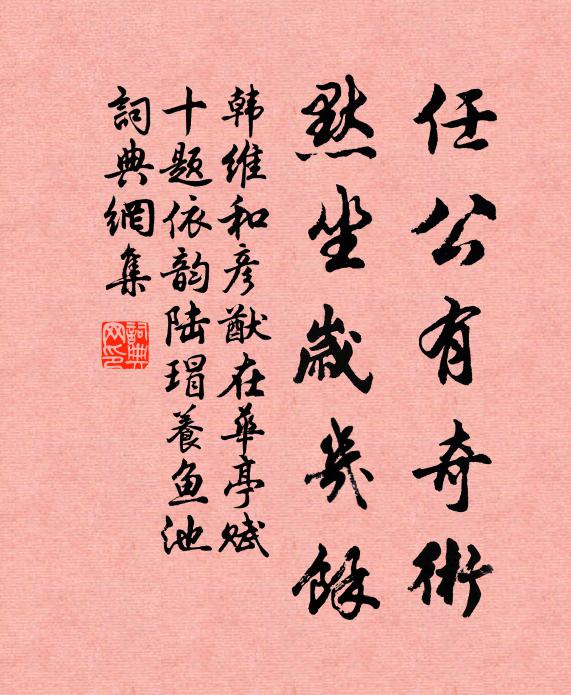 任公有奇術
默坐歲歲餘
韩維和彦猷在華亭赋
十题依韵陆瑁養鱼池
詞典網集
詞典网印